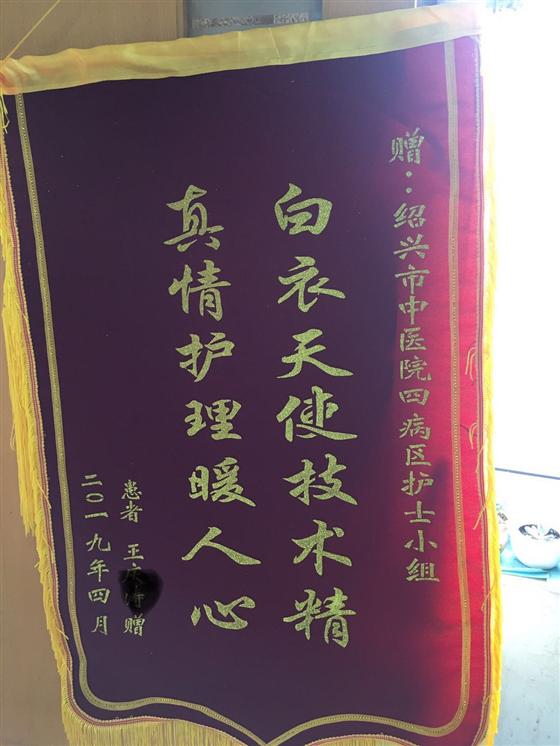 赠：绍兴市中医院四病区护士小组
白衣天使技术精
真情护理暖人心
患者 王 赠
二〇一九年四月